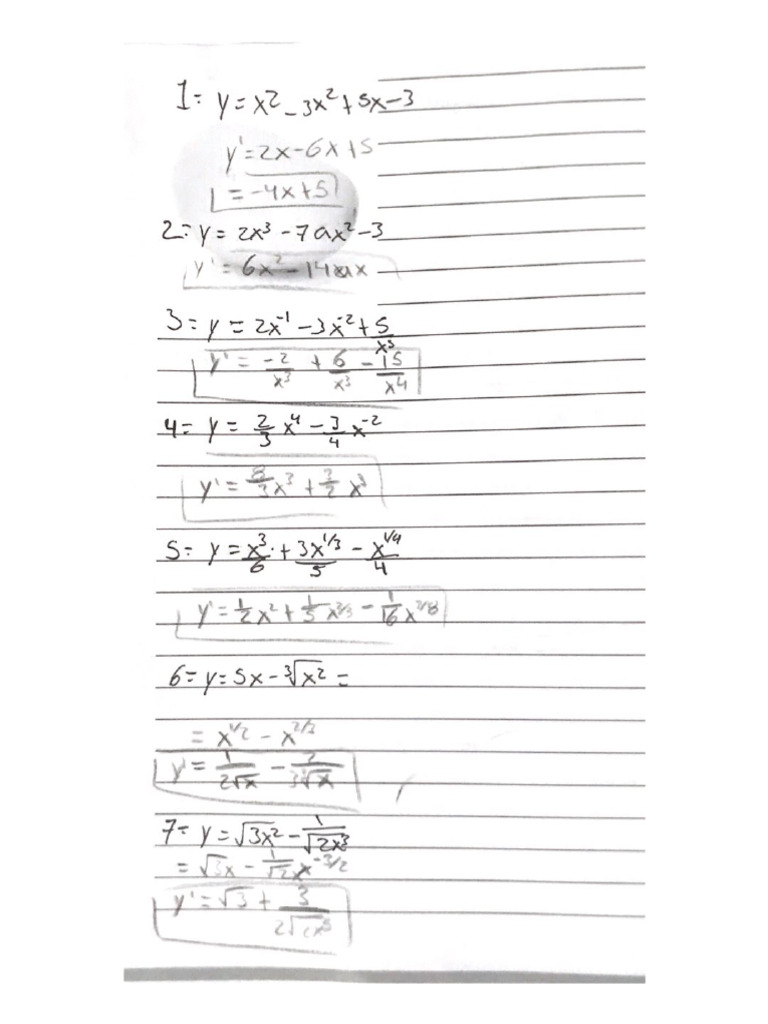 1= y = x2 - 3x² + 5x - 3
y' = 2x - 6x + 5
= -4x + 5
2= y = 2x³ - 7ax² - 3
y' = 6x² - 14ax
3= y = 2x⁻¹ - 3x⁻² + 5/x³
y' = -2/x³ + 6/x³ - 15/x⁴
4= y = 2/3 x⁴ - 3/4 x⁻²
y' = 8/3 x³ + 3/2 x³
5= y = x³/6 + 3x^1/3/5 - x^1/4/4
y' = 1/2 x² + 1/5 x^2/3 - 1/16 x^2/8
6= y = 5x - ³√x² =
= x^1/2 - x^2/3
y' = 1/2√x - 2/3³√x
7= y = √3x² - 1/√2x³
= √3x - 1/√2 x^-3/2
y' = √3 + 3/2√2x⁵